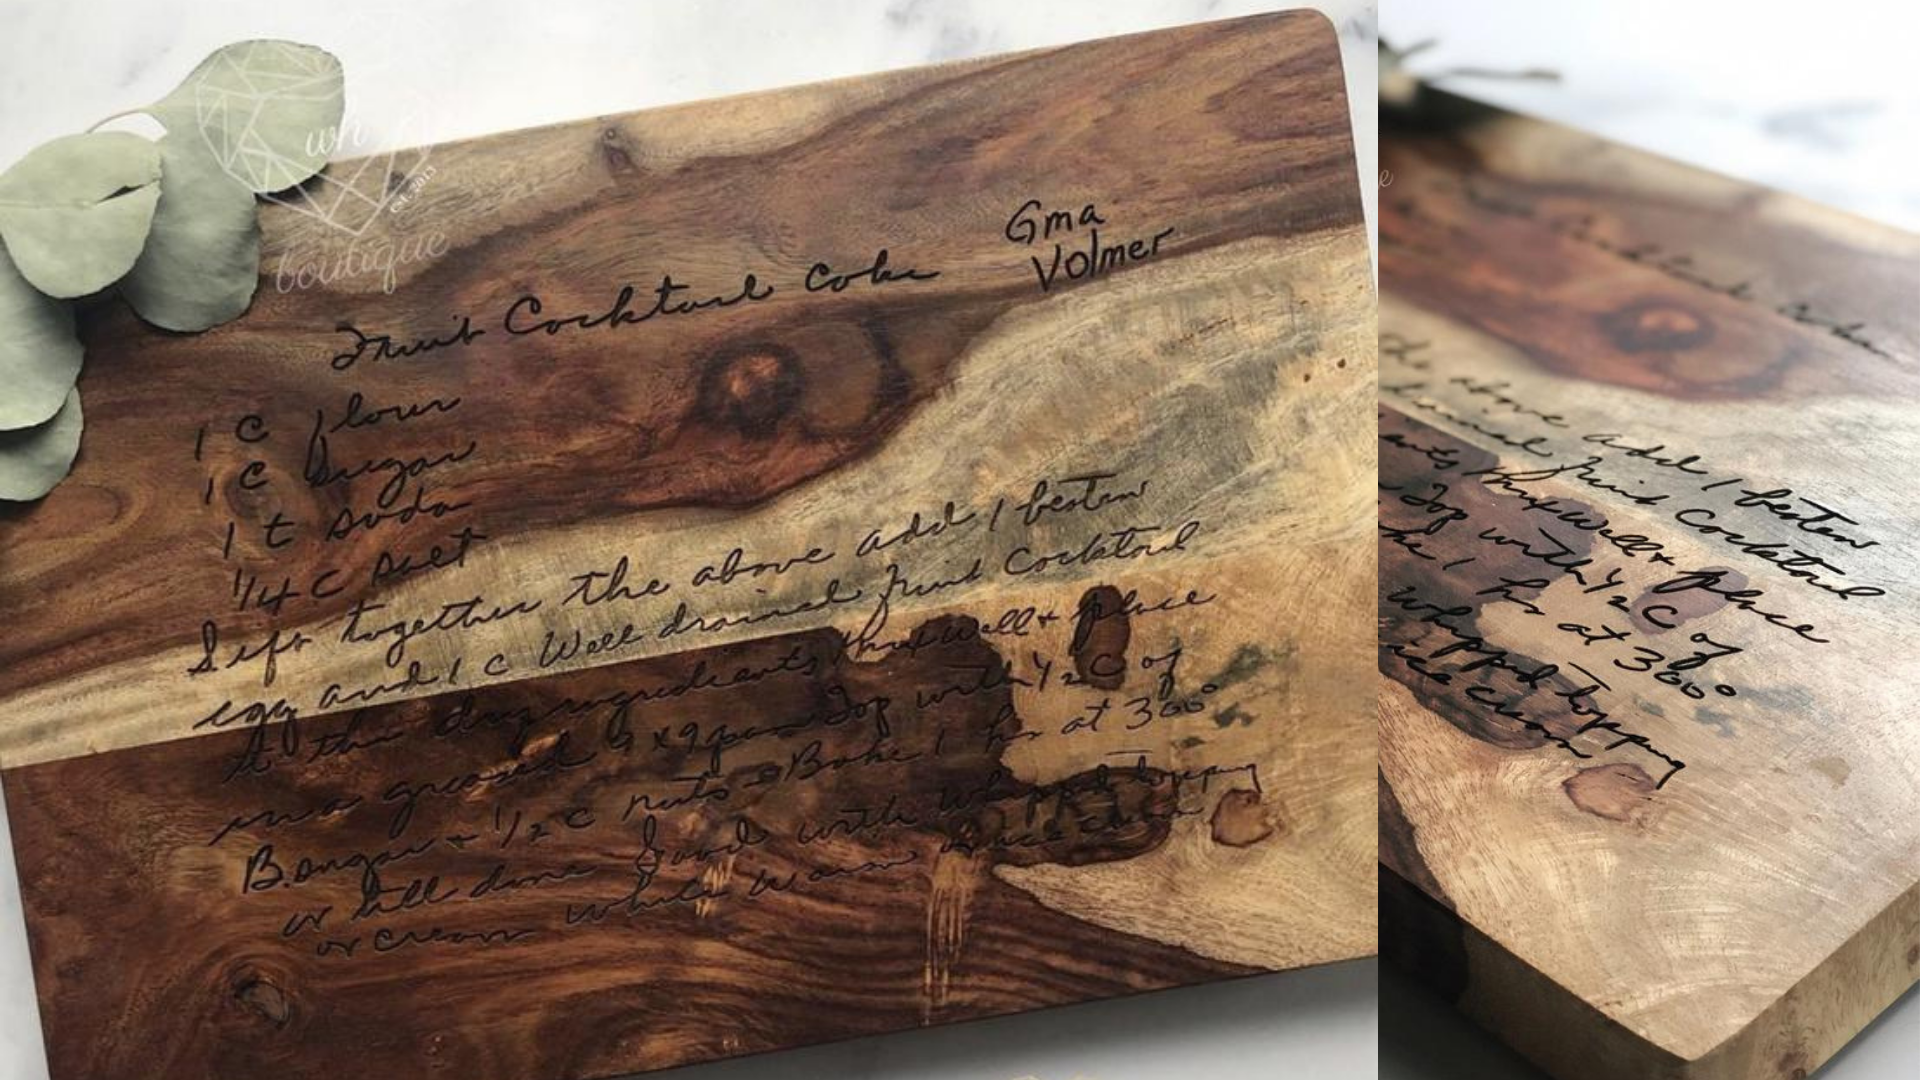 Gma
Volmer
Fruit Cocktail Cake
1 C flour
1 C Sugar
1 t soda
1/4 C Salt
Sift together the above add 1 beaten
egg and 1 C Well drained Fruit Cocktail
to the dry ingredients mix Well + place
in a greased 9x9 pan Top with 1/2 C of
B. sugar + 1/2 C nuts - Bake 1 hr at 300°
or till done Good with whipped topping
or cream while warm ice cream
wh
est. 2013
boutique
Cocktail Cake
the above add 1 beaten
drained Fruit Cocktail
mix Well + place
Top with 1/2 C of
1 hr at 300°
whipped topping
ice cream
e